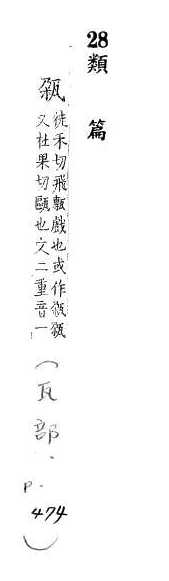 28
類篇
㼠
徒禾切飛甎戲也或作
又杜果切甌也文二重音一
（瓦部．
p.
474）